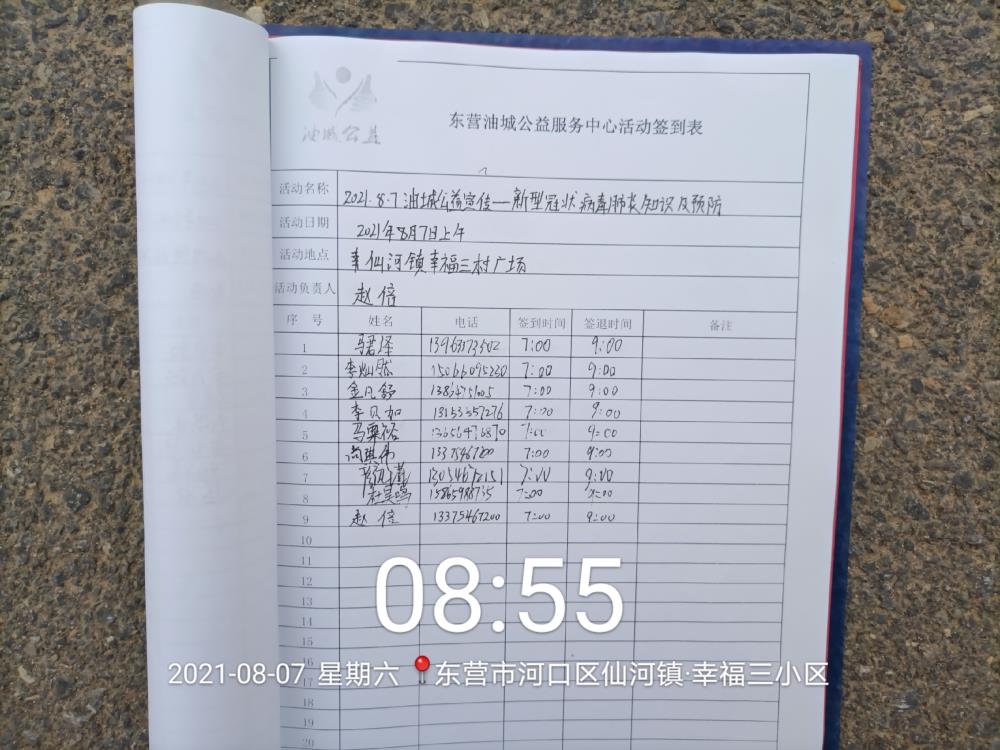 油城公益
东营油城公益服务中心活动签到表
活动名称 2021.8.7油城公益宣传—新型冠状病毒肺炎知识及预防
活动日期 2021年8月7日上午
活动地点 仙河镇幸福三村广场
活动负责人 赵倍
序 号 姓名 电话 签到时间 签退时间 备注
1 马君泽 13963773502 7:00 9:00
2 李灿然 15066095230 7:00 9:00
3 金凡舒 7:00 9:00
4 李贝加 13153357276 7:00 9:00
5 7:00 9:00
6 7:00 9:00
7 7:00 9:00
8 7:00 9:00
9 赵倍 13375467200 7:00 9:00
10
11
12
13
14
15
16
17
18
19
20
08:55
2021-08-07 星期六 东营市河口区仙河镇·幸福三小区